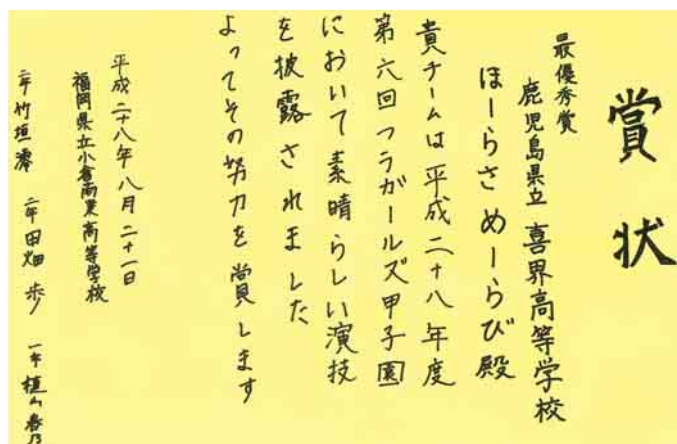 賞状
最優秀賞
鹿児島県立 喜界高等学校
ほーらさ めーらび殿
貴チームは平成二十八年度
第六回フラガールズ甲子園
において素晴らしい演技
を披露されました
よってその努力を賞します
平成二十八年八月二十一日
福岡県立小倉商業高等学校
二年 竹垣 二年 田畑 歩 一年 植山 春乃